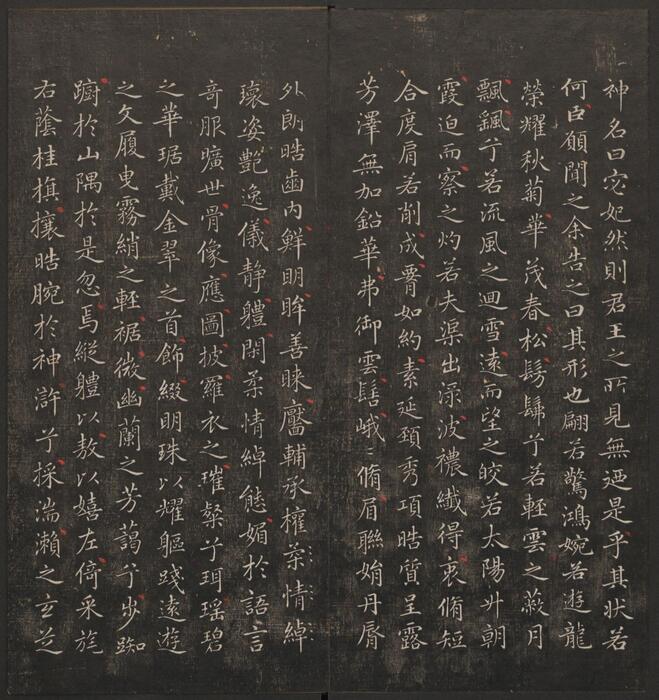 神名曰宓妃然則君王之所見無迺是乎其狀若
何臣願聞之余告之曰其形也翩若驚鴻婉若遊龍
榮耀秋菊華茂春松髣髴兮若輕雲之蔽月
飄颻兮若流風之迴雪遠而望之皎若太陽升朝
霞迫而察之灼若夫渠出淥波襛纖得衷脩短
合度肩若削成署如約素延頸秀項皓質呈露
芳澤無加鉛華弗御雲髻峨〻脩眉聯娟丹脣
外朗皓齒內鮮明眸善睞靨輔承權柔情綽
瓌姿艷逸儀靜體閑柔情綽態媚於語言
奇服曠世骨像應圖披羅衣之璀粲兮珥瑶碧
之華琚戴金翠之首飾綴明珠以耀軀踐遠遊
之文履曳霧綃之輕裾微幽蘭之芳藹兮步踟
躕於山隅於是忽焉縱體以敖以嬉左倚采旄
右蔭桂旗攘皓腕於神滸兮採湍瀨之玄芝